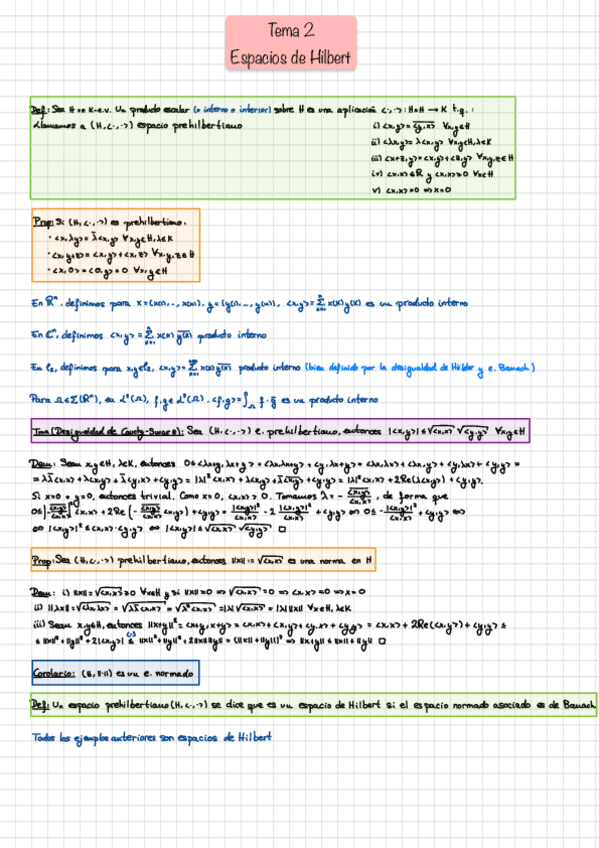 Tema 2
Espacios de Hilbert
Def: Sea H un K-e.v. Un producto escalar (o interno o interior) sobre H es una aplicación <·,·>: H×H → K t.q.:
Llamamos a (H,<·,·>) espacio prehilbertiano
i) <x,y> = \overline{<y,x>} ∀x,y∈H
ii) <λx,y> = λ<x,y> ∀x,y∈H, λ∈K
iii) <x+z,y> = <x,y> + <z,y> ∀x,y,z∈H
iv) <x,x>∈ℝ y <x,x> ≥ 0 ∀x∈H
v) <x,x> = 0 ⇒ x=0
Prop: Si (H,<·,·>) es prehilbertiano.
· <x,λy> = \bar{λ}<x,y> ∀x,y∈H, λ∈K
· <x,y+z> = <x,y> + <x,z> ∀x,y,z∈H
· <x,0> = <0,y> = 0 ∀x,y∈H
En ℝⁿ, definimos para x=(x(1),..,x(n)), y=(y(1),..,y(n)), <x,y> = Σ x(k)y(k) es un producto interno
En ℂⁿ, definimos <x,y> = Σ x(k) \overline{y(k)} producto interno
En ℓ₂, definimos para x,y∈ℓ₂, <x,y> = Σ x(k)\overline{y(k)} producto interno (bien definido por la desigualdad de Hölder y e. Banach)
Para Ω∈Σ(ℝⁿ), en L²(Ω), f,g∈L²(Ω). <f,g> = ∫_Ω f·\bar{g} es un producto interno
Tma (Desigualdad de Cauchy-Swarz): Sea (H,<·,·>) e. prehilbertiano, entonces |<x,y>| ≤ √<x,x> √<y,y> ∀x,y∈H
Dem: Sean x,y∈H, λ∈K, entonces 0≤<λx+y,λx+y> = <λx,λx+y> + <y,λx+y> = <λx,λx> + <λx,y> + <y,λx> + <y,y> =
= λ\bar{λ}<x,x> + λ<x,y> + \bar{λ}<y,x> + <y,y> = |λ|²<x,x> + λ<x,y> + \overline{λ<x,y>} + <y,y> = |λ|²<x,x> + 2Re(λ<x,y>) + <y,y>.
Si x=0 o y=0, entonces trivial. Como x≠0, <x,x> > 0. Tomamos λ = -\frac{\overline{<x,y>}}{<x,x>}, de forma que
0≤|-\frac{\overline{<x,y>}}{<x,x>}|²<x,x> + 2Re(-\frac{\overline{<x,y>}}{<x,x>}<x,y>) + <y,y> = \frac{|<x,y>|²}{<x,x>} - 2\frac{|<x,y>|²}{<x,x>} + <y,y> ⇔ 0≤ -\frac{|<x,y>|²}{<x,x>} + <y,y> ⇔
⇔ |<x,y>|² ≤ <x,x>·<y,y> ⇔ |<x,y>| ≤ √<x,x> √<y,y> □
Prop: Sea (H,<·,·>) prehilbertiano, entonces ||x|| := √<x,x> es una norma en H
Dem: i) ||x|| = √<x,x> ≥ 0 ∀x∈H y si ||x||=0 ⇒ √<x,x> = 0 ⇒ <x,x> = 0 ⇒ x=0
ii) ||λx|| = √<λx,λx> = √λ\bar{λ}<x,x> = √|λ|²<x,x> = |λ|√<x,x> = |λ| ||x|| ∀x∈H, λ∈K
iii) Sean x,y∈H, entonces ||x+y||² = <x+y,x+y> = <x,x> + <x,y> + <y,x> + <y,y> = <x,x> + 2Re(<x,y>) + <y,y> ≤
≤ ||x||² + ||y||² + 2|<x,y>| ≤ ||x||² + ||y||² + 2||x|| ||y|| = (||x||+||y||)² ⇒ ||x+y|| ≤ ||x||+||y|| □
Corolario: (H,||·||) es un e. normado
Def: Un espacio prehilbertiano (H,<·,·>) se dice que es un espacio de Hilbert si el espacio normado asociado es de Banach
Todos los ejemplos anteriores son espacios de Hilbert